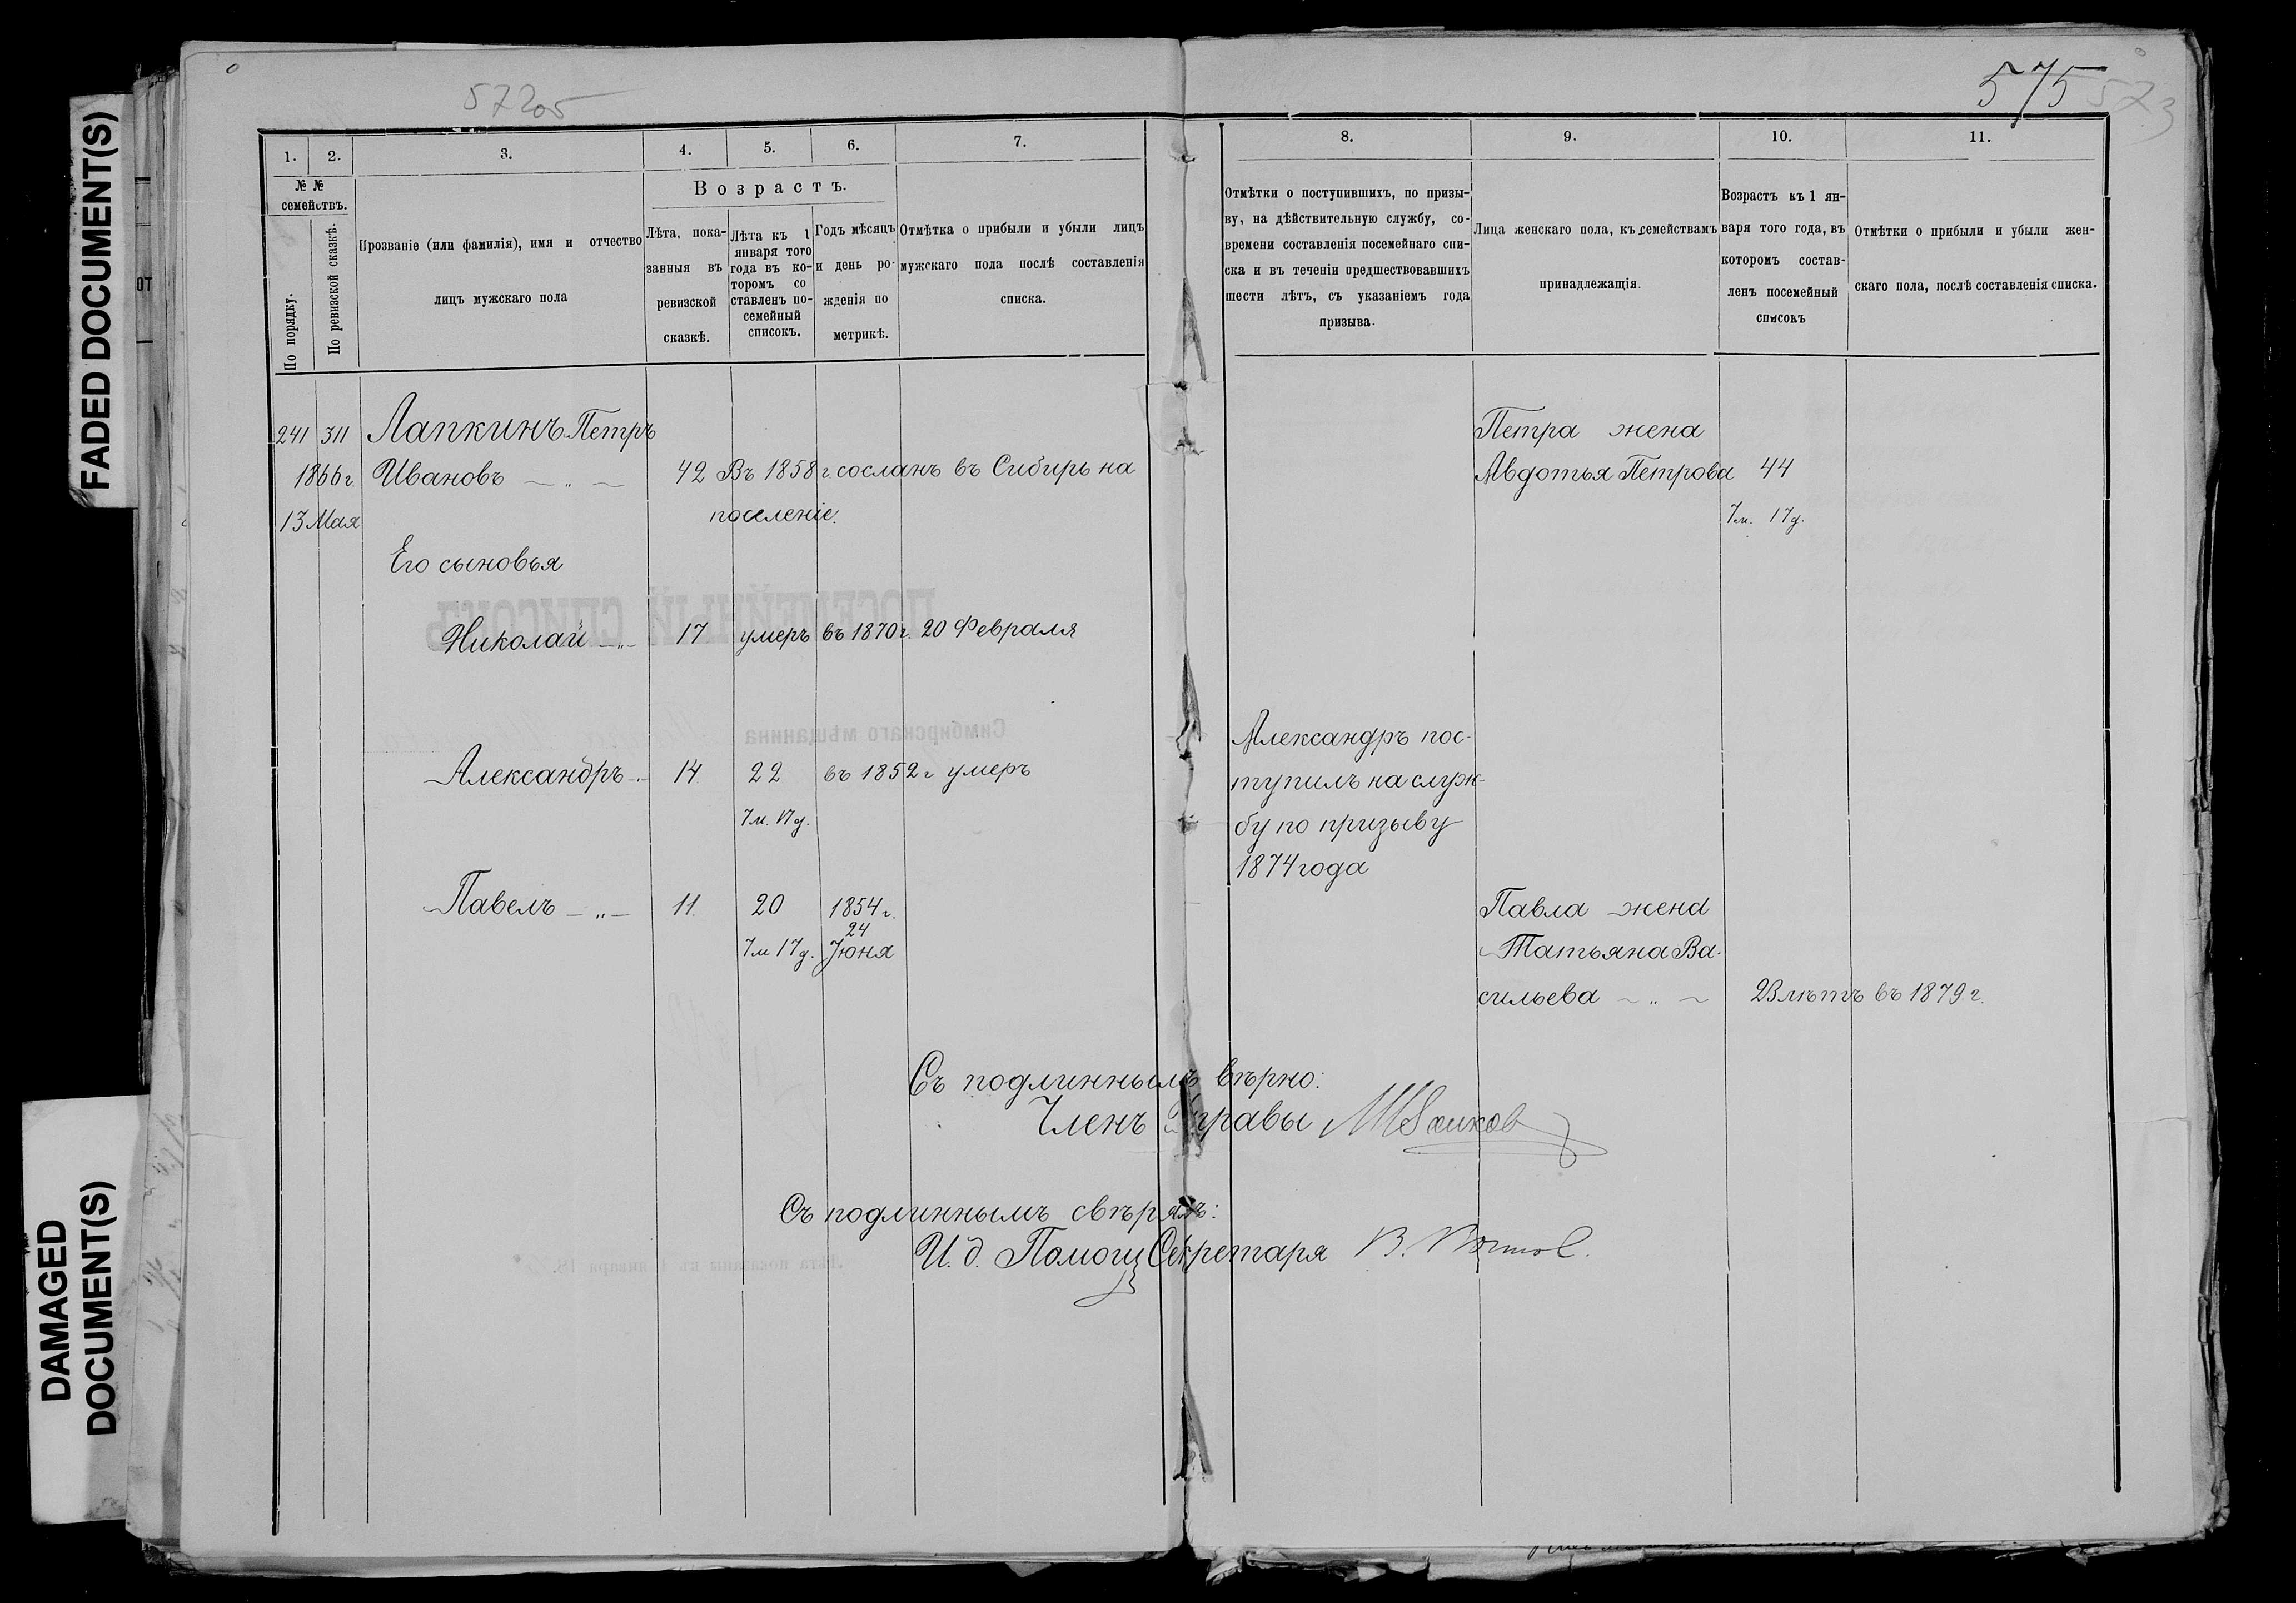 FADED DOCUMENT(S)
DAMAGED
DOCUMENT(S)
575
573
1.
2.
3.
4.
5.
6.
7.
8.
9.
10.
11.
№ №
семействъ.
По порядку.
По ревизской сказкѣ.
Прозваніе (или фамилія), имя и отчество
лицъ мужскаго пола
Возрастъ.
Лѣта, пока-
занныя въ
ревизской
сказкѣ.
Лѣта къ 1
января того
года въ ко-
торомъ со
ставленъ по-
семейный
списокъ.
Годъ мѣсяцъ
и день ро-
жденія по
метрикѣ.
Отмѣтка о прибыли и убыли лицъ
мужскаго пола послѣ составленія
списка.
Отмѣтки о поступившихъ, по призы-
ву, на дѣйствительную службу, со-
времени составленія посемейнаго спи-
ска и въ теченіи предшествовавшихъ
шести лѣтъ, съ указаніемъ года
призыва.
Лица женскаго пола, къ семействамъ
принадлежащія.
Возрастъ къ 1 ян-
варя того года, въ
которомъ состав-
ленъ посемейный
списокъ
Отмѣтки о прибыли и убыли жен-
скаго пола, послѣ составленія списка.
241 311 Лапкинъ Петръ
1866 г. Ивановъ — „ — 42 Въ 1858 г. сосланъ въ Сибирь на
13 Мая поселеніе.
Петра жена
Авдотья Петрова 44
7 м. 17 д.
Его сыновья
Николай — „ — 17 умеръ въ 1870 г. 20 Февраля
Александръ — „ — 14. 22 въ 1852 г умеръ
7 м. 17 д.
Александръ пос-
тупилъ на служ-
бу по призыву
1874 года
Павелъ — „ — 11. 20 1854 г.
24
7 м 17 д. Іюня
Павла жена
Татьяна Ва-
сильева — „ — 23 лѣтъ въ 1879 г.
Съ подлиннымъ вѣрно:
Членъ Управы
Съ подлиннымъ свѣрялъ:
И. д. Помощ Секретаря